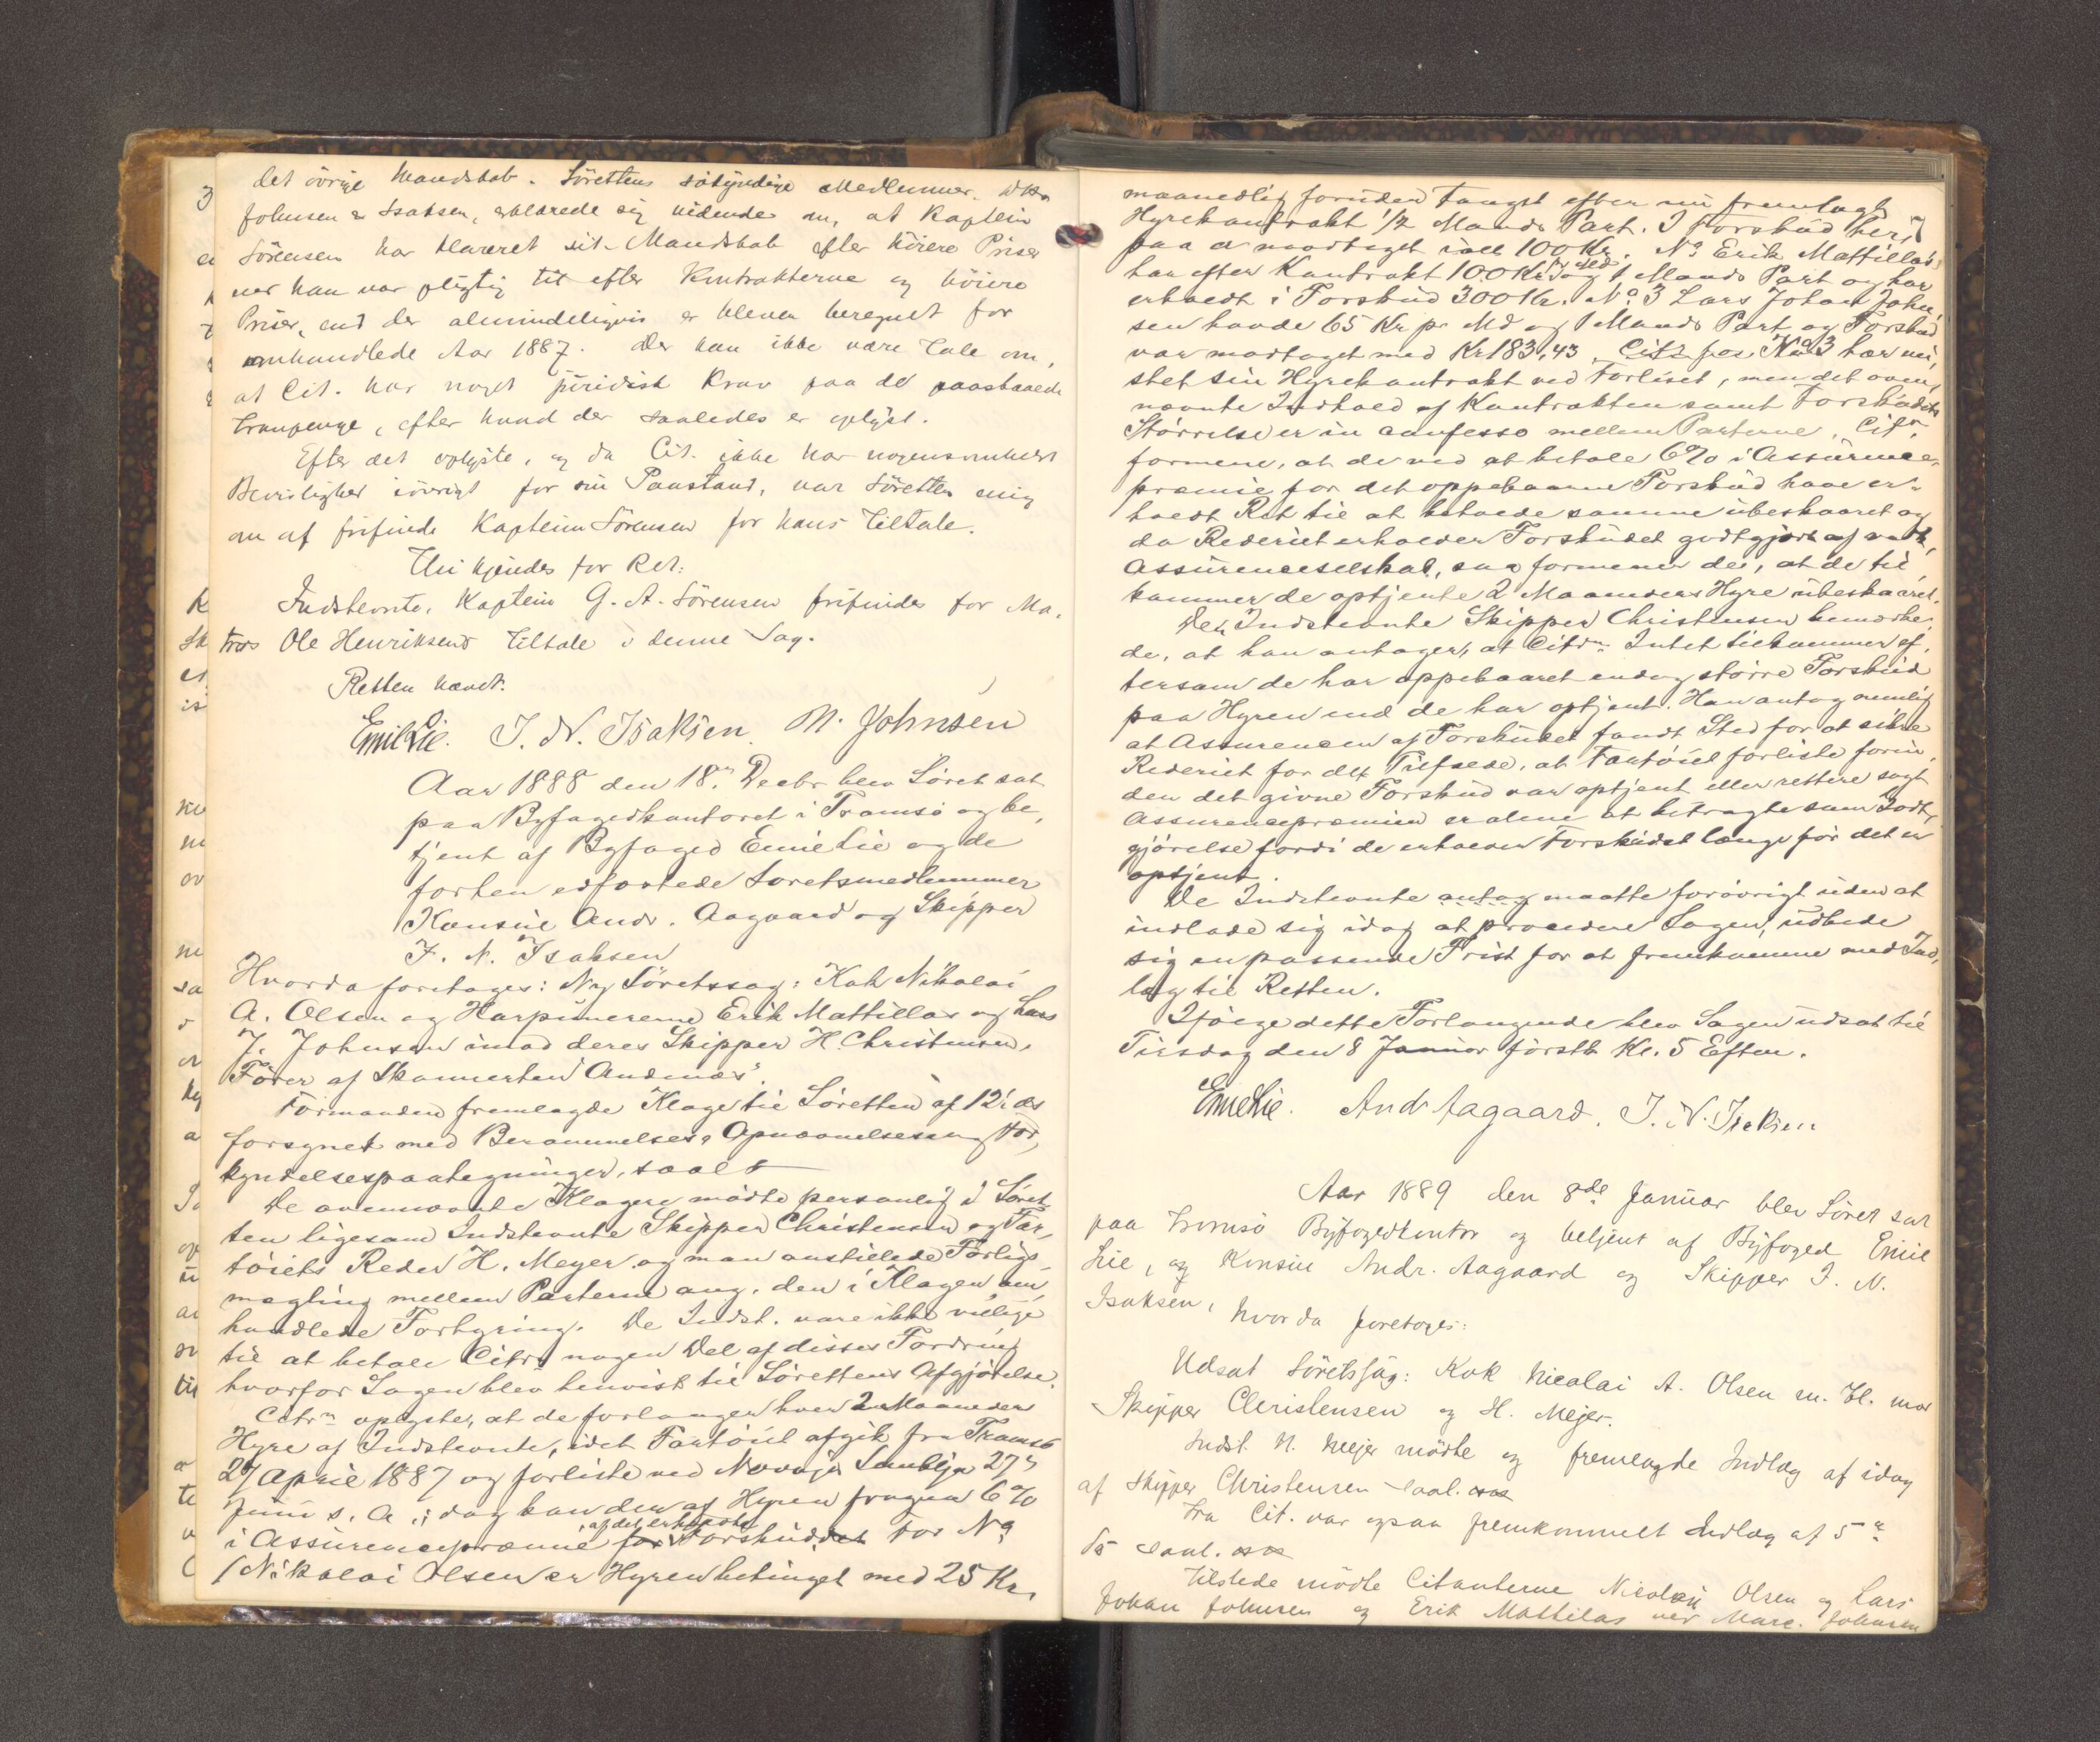 det övrige Mandskab. Sörettens sökyndige Medlemmer,
Johnsen & Isaksen, erklærede sig vidende om, at Kaptein
Sörensen har klareret sit Mandskab efter höiere Priser
end han var pligtig til efter Kontrakterne og höiere
Priser, end der almindeligvis er bleven beregnet for
omhandlede Aar 1887. Der kan ikke være Tale om,
at Cit. har noget juridisk Krav paa de paastaaede
Tranpenge, efter hvad der saaledes er oplyst.
Efter det oplyste, og da Cit. ikke har nogensomhelst
Bevisligheder iövrigt for sin Paastand, var Söretten enig
om at frifinde Kaptein Sörensen for hans Tiltale.
Thi kjendes for Ret:
Indstevnte, Kaptein G. A. Sörensen frifindes for Ma-
tros Ole Henriksens Tiltale i denne Sag.
Retten hævet.
Emil Lie. I. N. Isaksen M. Johnsen
Aar 1888 den 18n Decbr blev Söret sat
paa Byfogedkontoret i Tromsö og be-
tjent af Byfoged Emil Lie og de
forhen edfæstede Soretsmedlemmer
Konsul Andr. Aagaard og Skipper
I. N. Isaksen
Hvorda foretages: Ny Söretssag: Kok Nikolai
A. Olsen og Harpunererne Erik Mattillas og Lars
J. Johnsen imod deres Skipper H. Christensen,
Förer af Skonnerten "Andenæs".
Formanden fremlagde Klage til Söretten af 12 ds
forsynet med Berammelses, Opnævnelses og For-
kyndelsespaategninger, saal
De ovennævnte Klagere mödte personlig i Söret-
ten ligesom Indstevnte Skipper Christensen og Far-
töiets Reder H. Meyer og man anstillede Forligs-
mægling mellem Parterne ang. den i Klagen om-
handlede Forhyring. De Indst. vare ikke villige
til at betale Citr. nogen Del af disses Fordring
hvorfor Sagen blev henvist til Sörettens Afgjörelse.
Citrn oplyste, at de forlanger hver 2 Maaneders
Hyre af Indstevnte, idet Fartöiet afgik fra Tromsö
27 April 1887 og forliste ved Novaja Semlja 27
Juni s. A., dog kan der af Hyren fragaa 6 %
i Assurancepræmie af det erholdte Forskud. For No
1 Nikolai Olsen er Hyren betinget med 25 Kr.
maanedlig foruden Fangst efter nu fremlagt
Hyrekontrakt 1/2 Mands Part. I Forskud her-
paa er modtaget ialt 100 Kr. No Erik Mattillas
har efter Kontrakt 100 Kr og 1 Mands Part og har
erholdt i Forskud 300 Kr. No 3 Lars Johan John-
sen havde 65 Kr pr Md og 1 Mands Part og Forskud
var modtaget med Kr 183,43. No 3 har mi-
stet sin Hyrekontrakt ved Forliset, men det oven-
nævnte Indhold af Kontrakten samt Forskudets
Störrelse er in confesso mellem Parterne. Citr.
formene, at de ved at betale 6 % i Assurance-
præmie for det oppebaarne Forskud have er-
holdt Ret til at beholde samme ubeskaaret og
da Rederiet erholder Forskudet godtgjort af
Assuranceselskab, saa formener de, at de til-
kommer de optjente 2 Maaneders Hyre ubeskaaret.
Den Indstevnte Skipper Christensen bemærke-
de, at han antager, at Citrn. Intet tilkommer ef-
tersom de har oppebaaret endog större Forskud
paa Hyren end de har optjent. Han antog nemlig
at Assurancen af Forskudet fandt Sted for at sikre
Rederiet for det Tilfælde, at Fartöiet forliste forin-
den det givne Forskud var optjent eller rettere sagt
Assurancepræmien er alene at betragte som Godt-
gjörelse fordi de erholder Forskudet længe för det er
optjent.
De Indstevnte maatte forövrigt uden at
indlade sig idag at procedere Sagen, udbede
sig en passende Frist for at fremkomme med Ind-
læg til Retten.
Ifölge dette Forlangende blev Sagen udsat til
Tirsdag den 8 Januar förstk. Kl. 5 Efterm.
Emil Lie. Andr Aagaard. I. N. Isaksen
Aar 1889 den 8de Januar blev Söret sat
paa Tromsö Byfogedkontor og betjent af Byfoged Emil
Lie, og Konsul Andr. Aagaard og Skipper I. N.
Isaksen, hvorda foretoges:
Udsat Söretssag: Kok Nicolai A. Olsen m. Fl. mod
Skipper Christensen og H. Mejer.
Indst. H. Mejer mödte og fremlagde Indlæg af idag
af Skipper Christensen saal.
Fra Cit. var ogsaa fremkommet Indlæg af 5
saal.
Tilstede mödte Citanterne Nicolai Olsen og Lars
Johan Johnsen og Erik Mattilas ved Marc. Johnsen